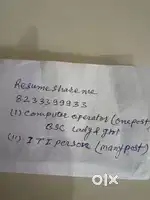 Resume share me
8233399933
(1) Computer operator (one post)
BSC lady & gent
(11) ITI person (many post)
olx